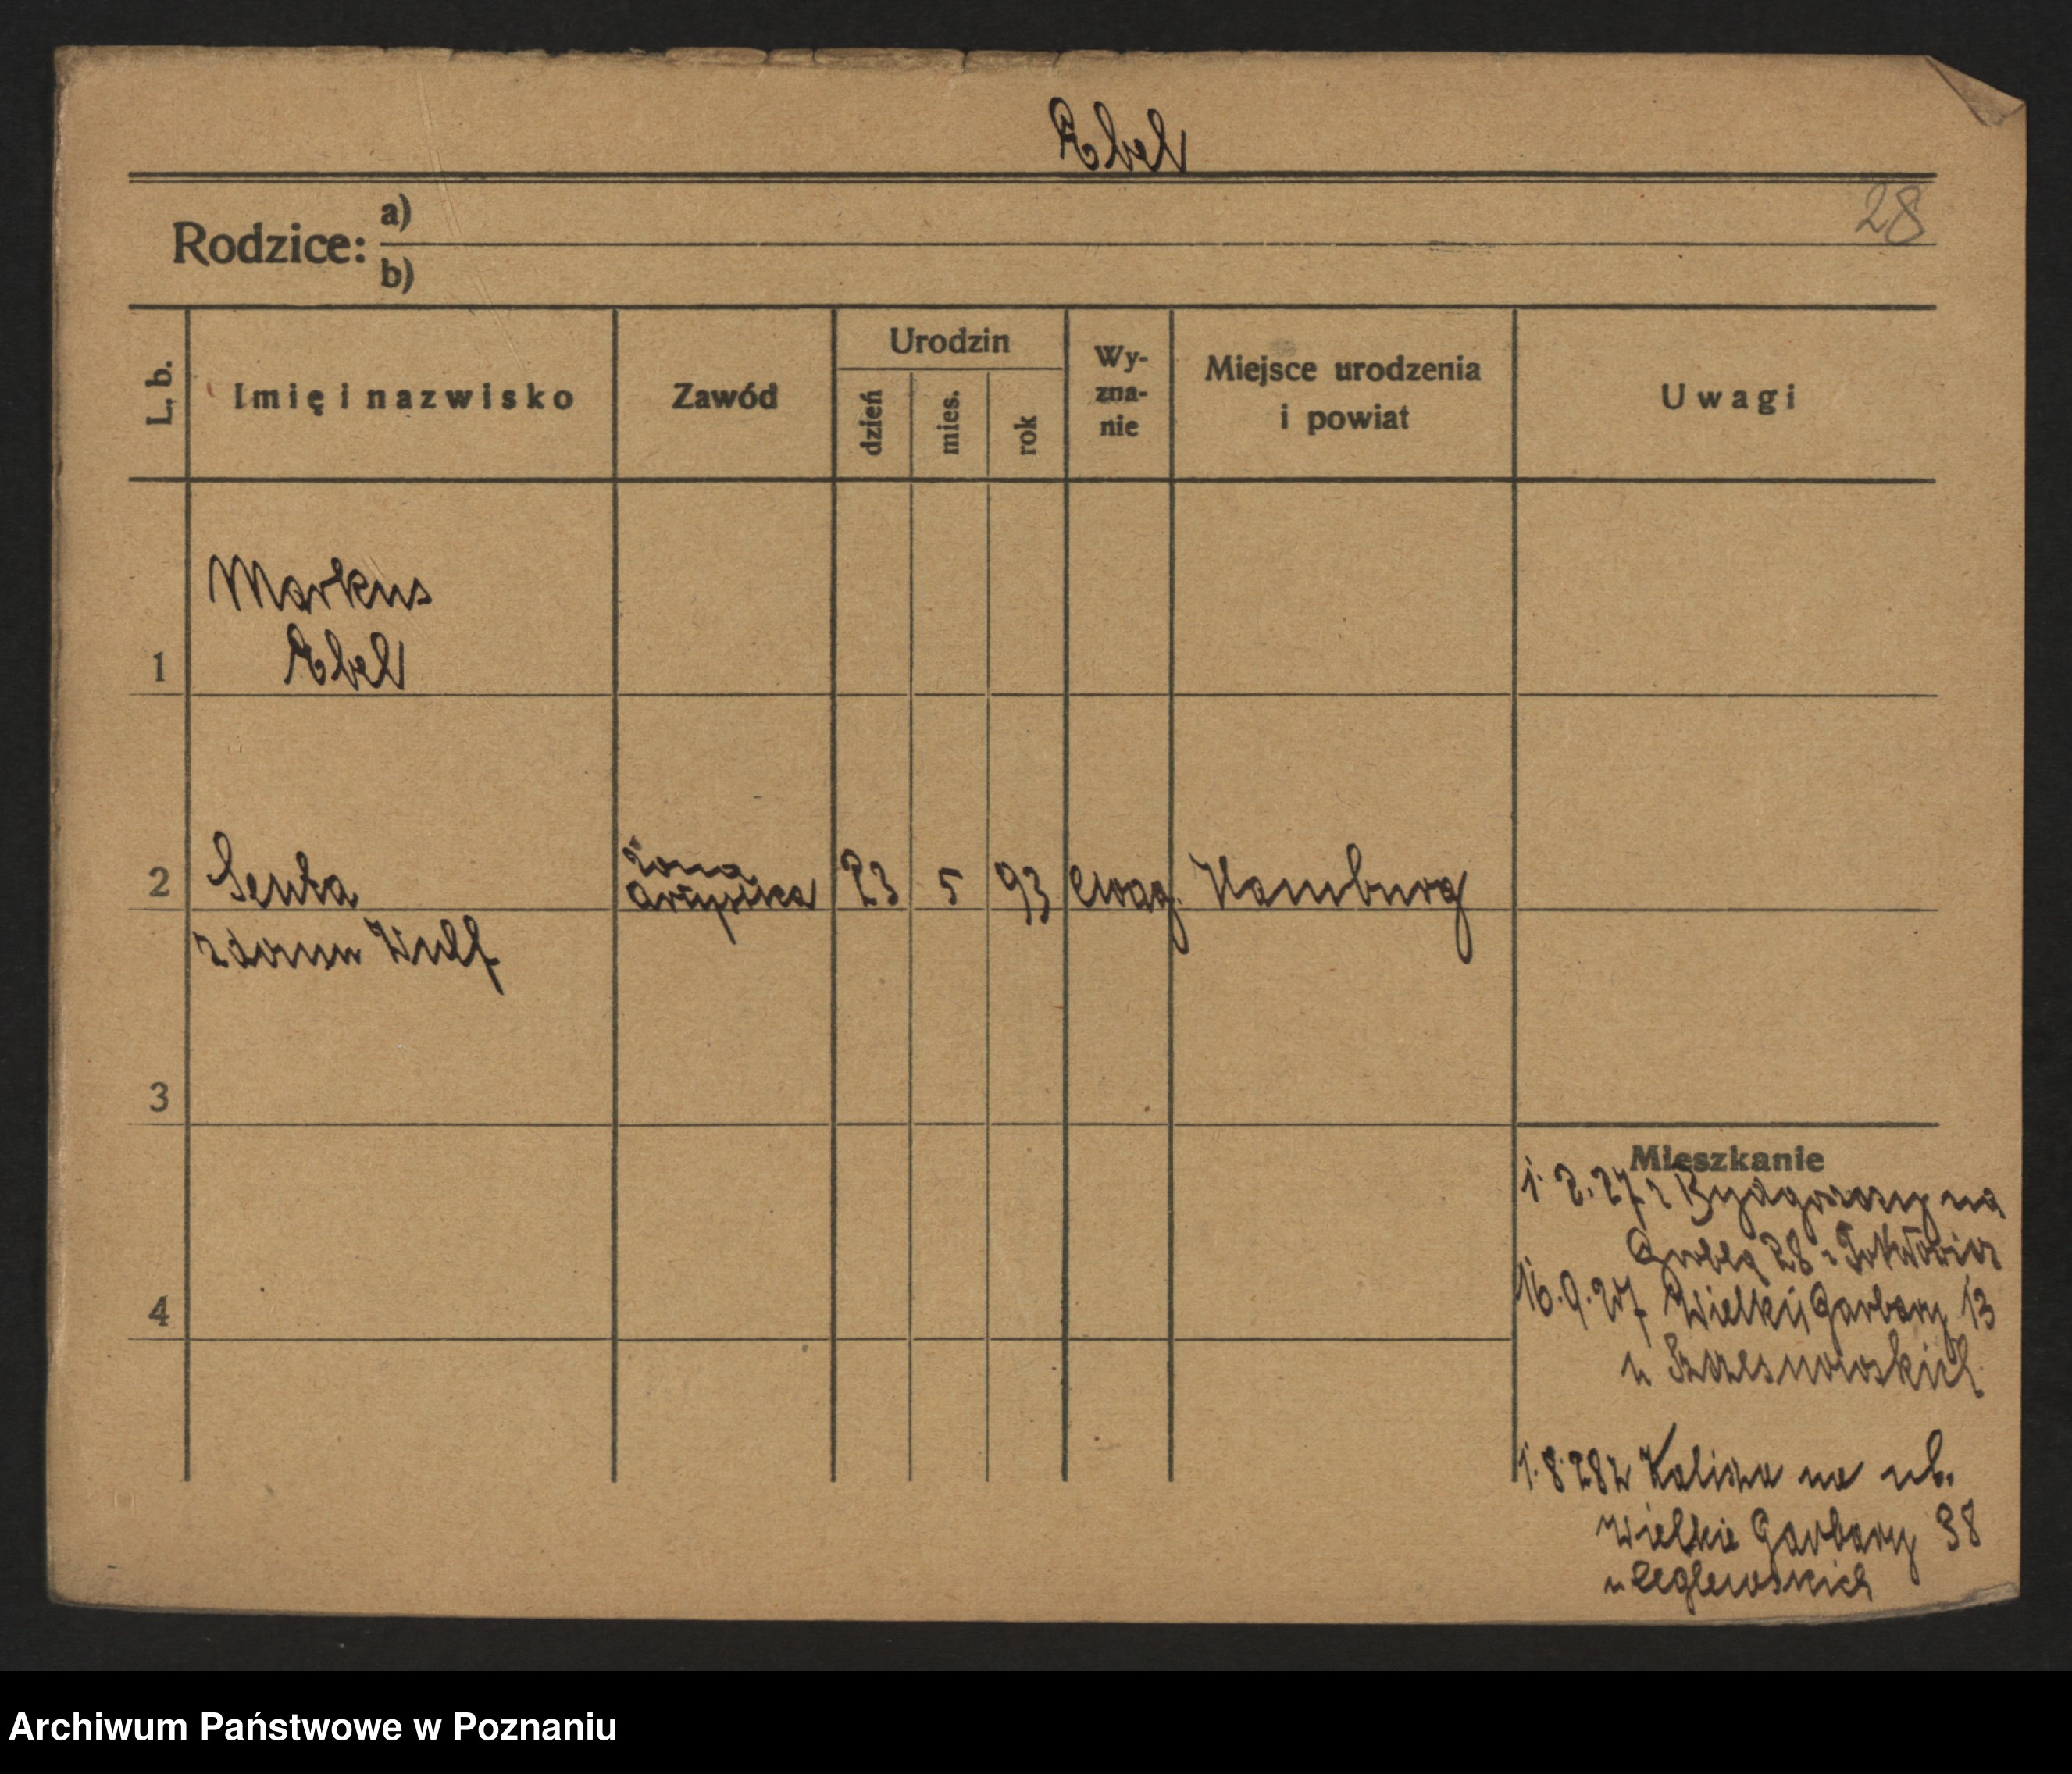 Abel
28
Rodzice: a)
b)
L. b.
Imię i nazwisko
Zawód
Urodzin
dzień
mies.
rok
Wy-
zna-
nie
Miejsce urodzenia
i powiat
Uwagi
Markus
1 Abel
żona
2 Senta artysta 23 5 93 ewag. Hamburg
z domu Wulf
3
Mieszkanie
1. 2. 27 z Bydgoszczy na
Groblą 28
4 16. 9. 27 Wielkie Garbary 13
u Szczesnowskich
1. 8. 28 z Kalisza na ul.
Wielkie Garbary 38
u Ceglewskich
Archiwum Państwowe w Poznaniu